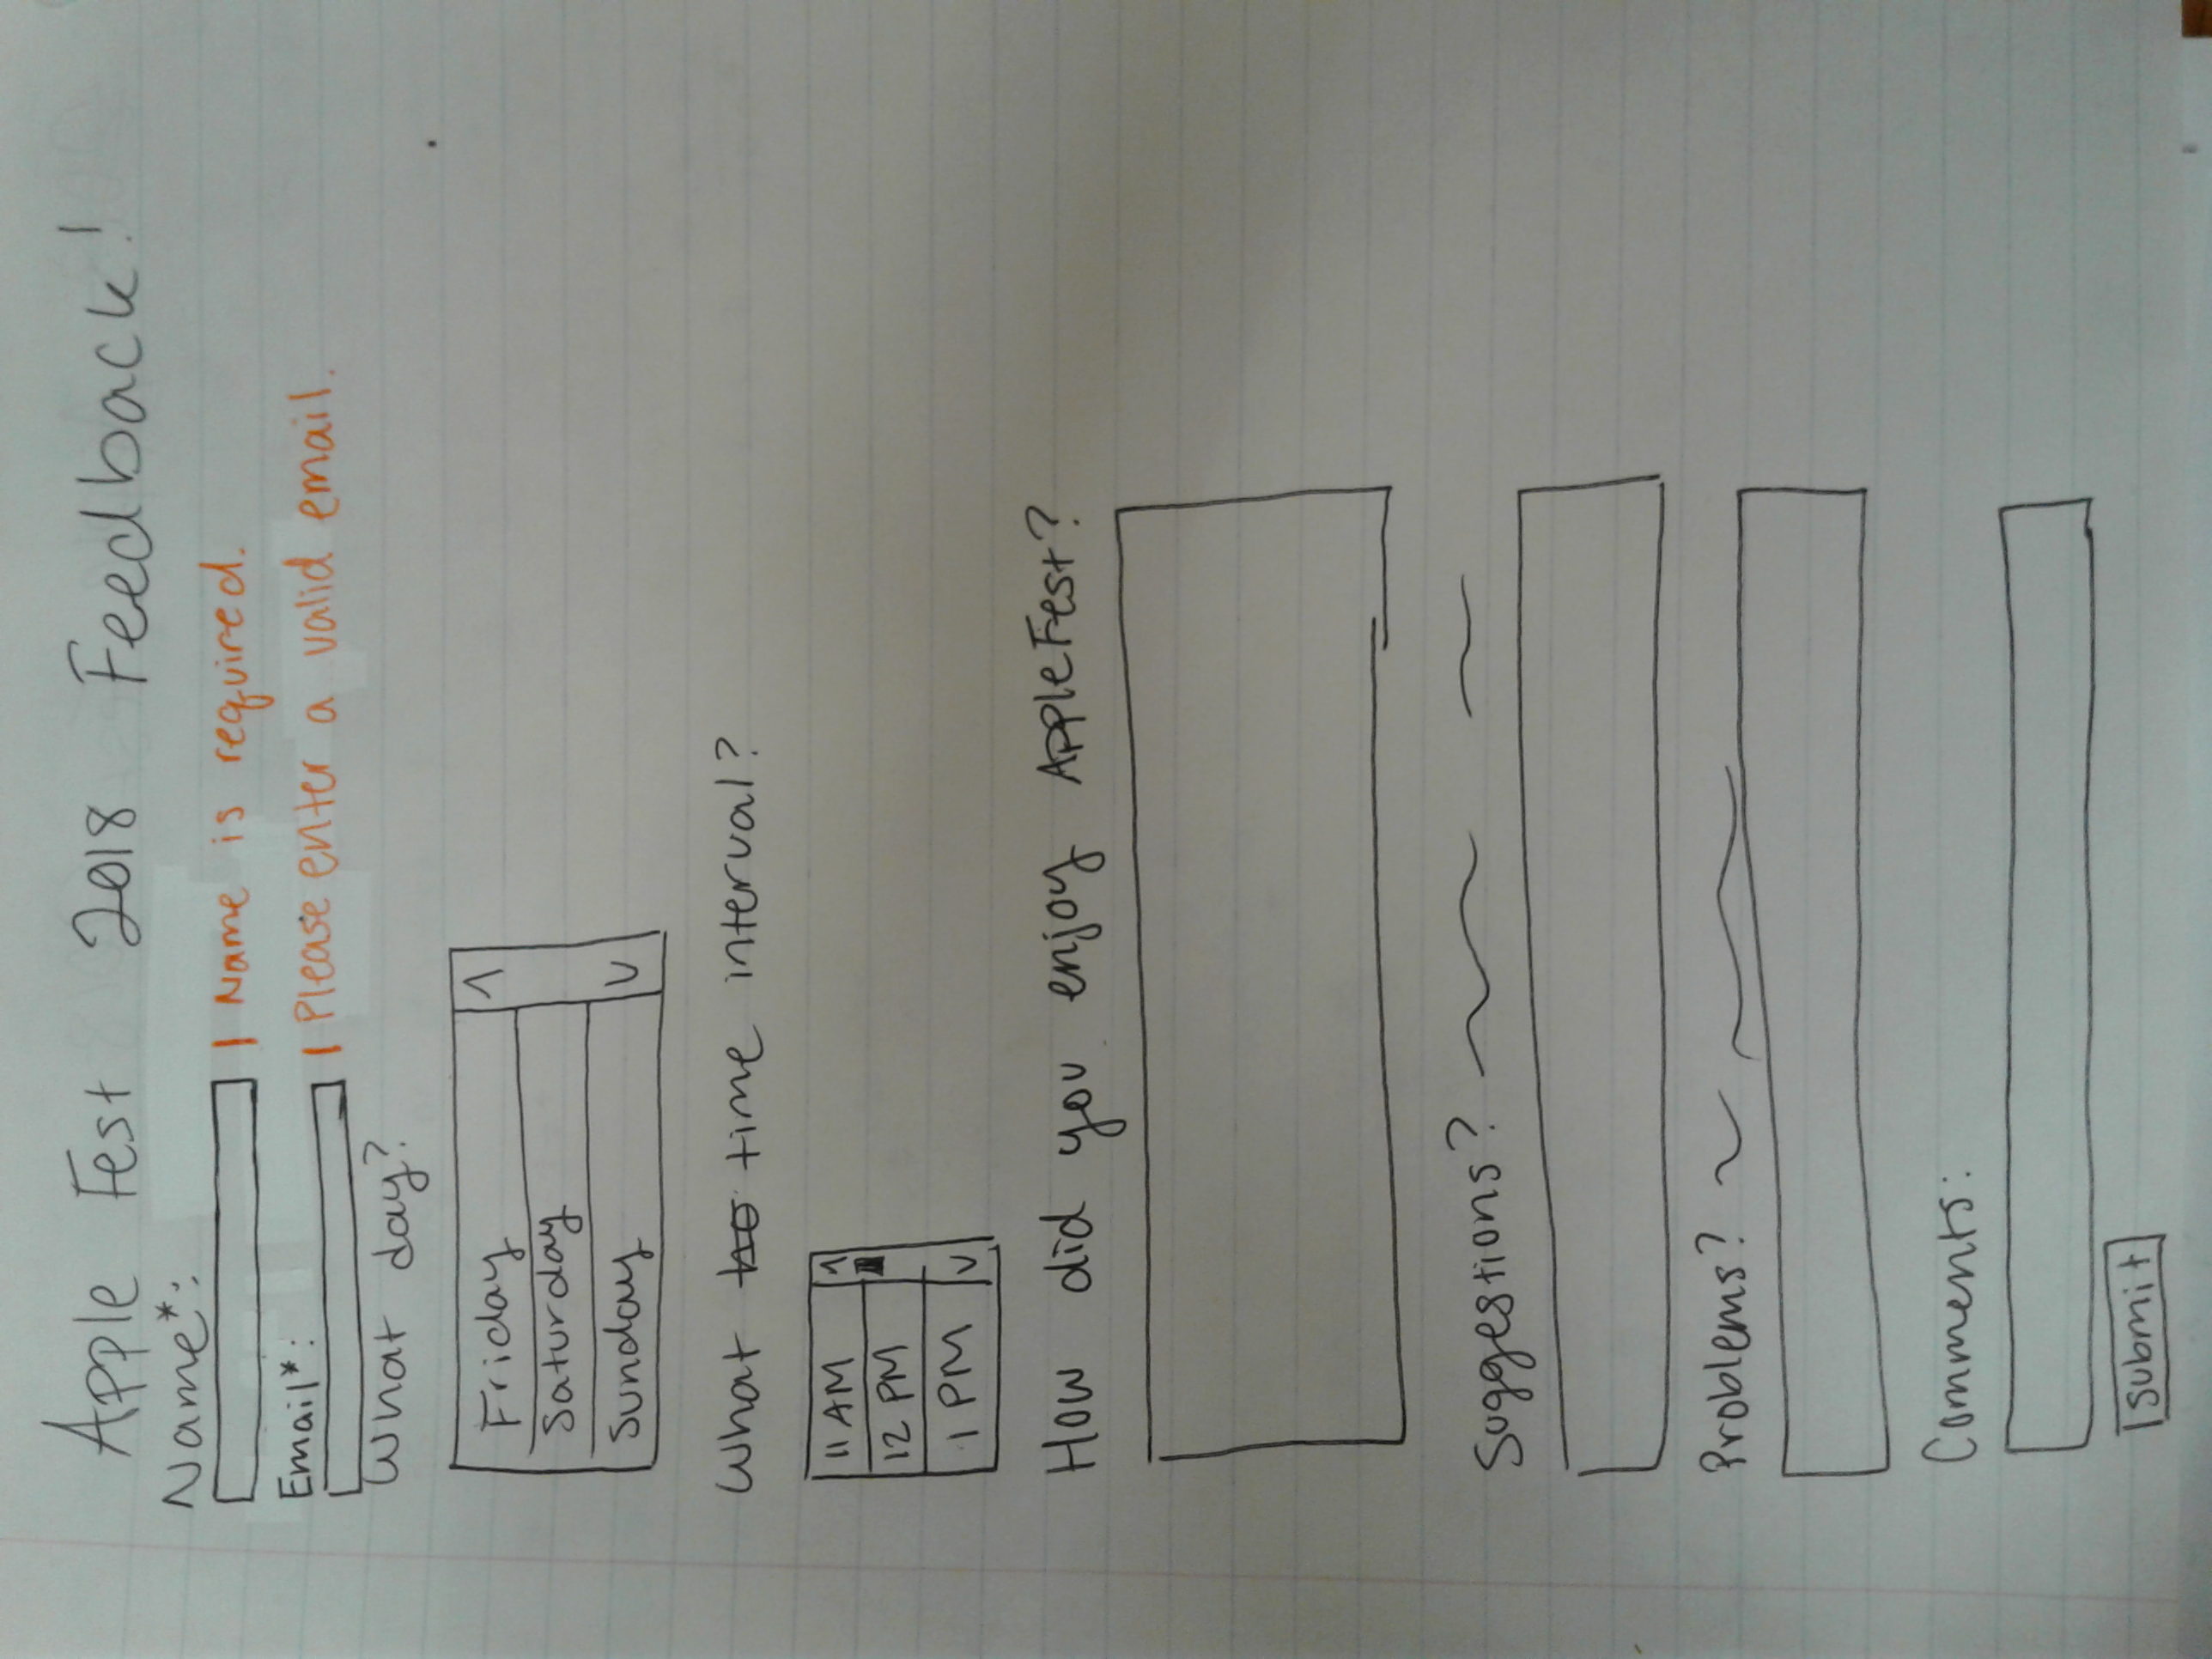 Apple Fest 2018 Feedback!
Name*:
| Name is required.
Email*:
| Please enter a valid email.
What day?
Friday
Saturday
Sunday
What time interval?
11 AM
12 PM
1 PM
How did you enjoy AppleFest?
Suggestions?
Problems?
Comments:
submit